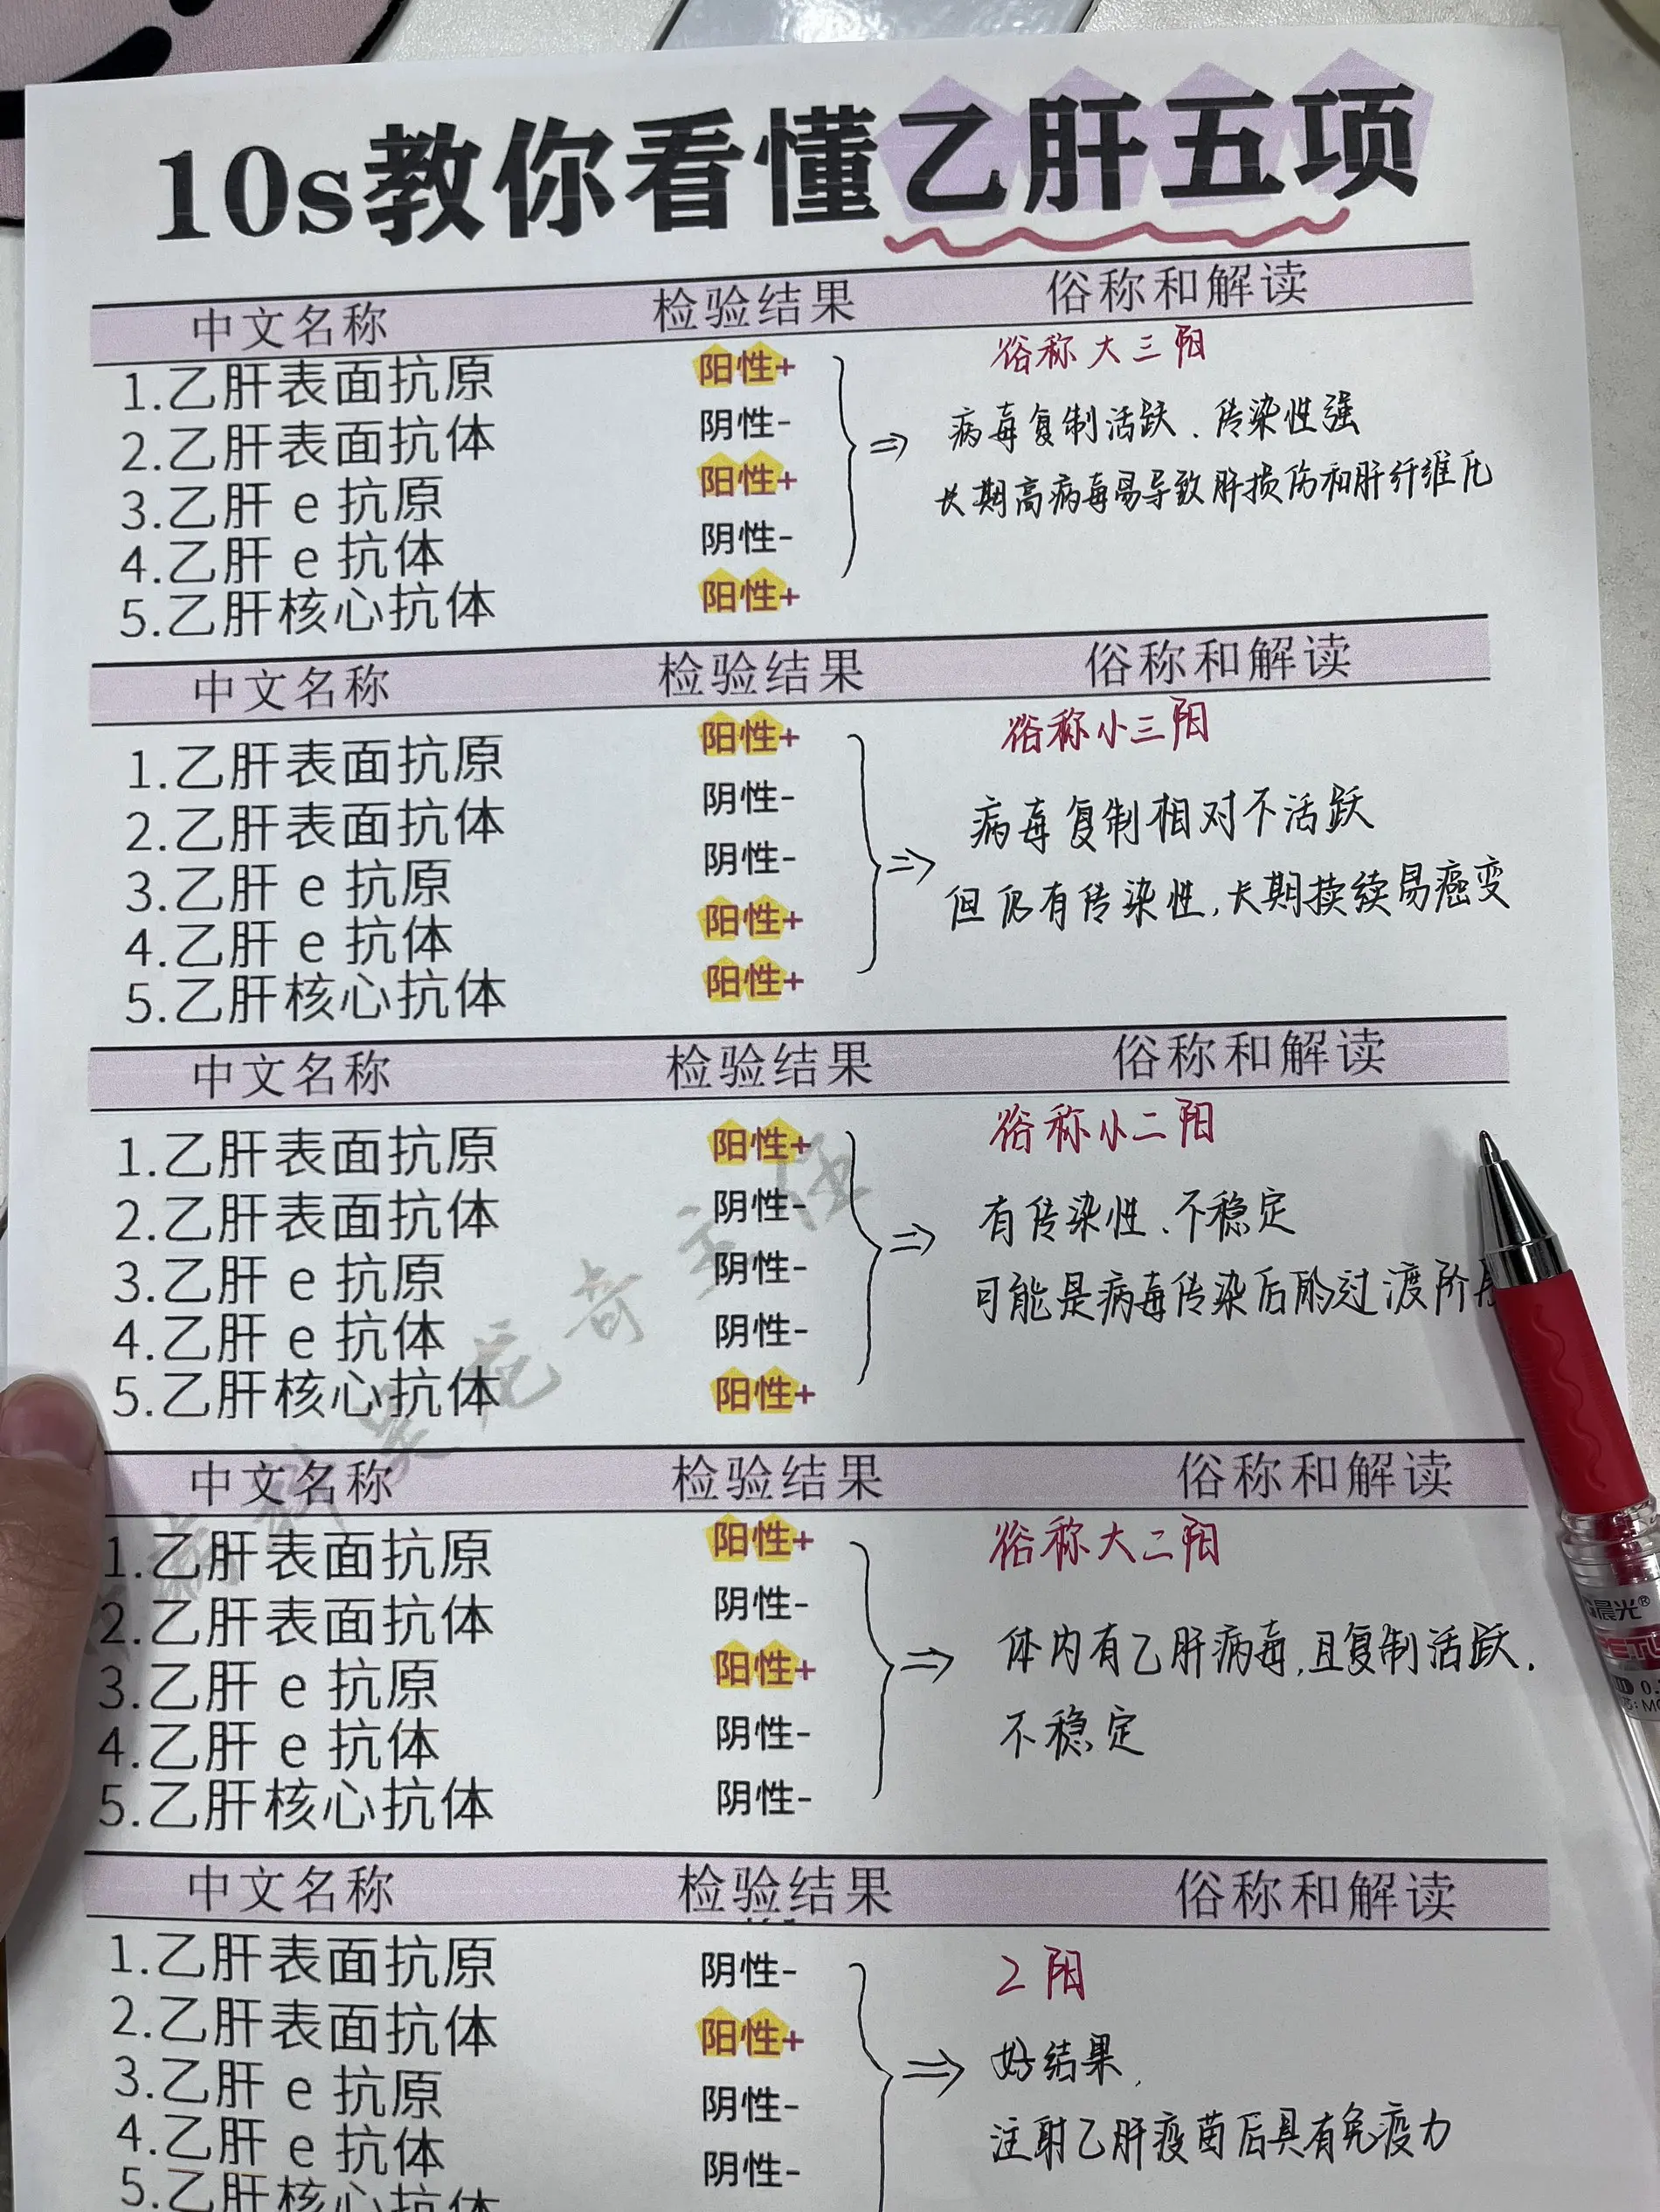 10s教你看懂乙肝五项
中文名称 检验结果 俗称和解读
1.乙肝表面抗原 阳性+ 俗称大三阳
2.乙肝表面抗体 阴性- 病毒复制活跃、传染性强
3.乙肝 e 抗原 阳性+ 长期高病毒易导致肝损伤和肝纤维化
4.乙肝 e 抗体 阴性-
5.乙肝核心抗体 阳性+
中文名称 检验结果 俗称和解读
1.乙肝表面抗原 阳性+ 俗称小三阳
2.乙肝表面抗体 阴性- 病毒复制相对不活跃
3.乙肝 e 抗原 阴性- 但仍有传染性,长期持续易癌变
4.乙肝 e 抗体 阳性+
5.乙肝核心抗体 阳性+
中文名称 检验结果 俗称和解读
1.乙肝表面抗原 阳性+ 俗称小二阳
2.乙肝表面抗体 阴性- 有传染性、不稳定
3.乙肝 e 抗原 阴性- 可能是病毒传染后的过渡阶
4.乙肝 e 抗体 阴性-
5.乙肝核心抗体 阳性+
中文名称 检验结果 俗称和解读
1.乙肝表面抗原 阳性+ 俗称大二阳
2.乙肝表面抗体 阴性- 体内有乙肝病毒,且复制活跃.
3.乙肝 e 抗原 阳性+ 不稳定
4.乙肝 e 抗体 阴性-
5.乙肝核心抗体 阴性-
中文名称 检验结果 俗称和解读
1.乙肝表面抗原 阴性- 2阳
2.乙肝表面抗体 阳性+ 好结果,
3.乙肝 e 抗原 阴性- 注射乙肝疫苗后具有免疫力
4.乙肝 e 抗体 阴性-
5.乙肝核心抗体
晨光®